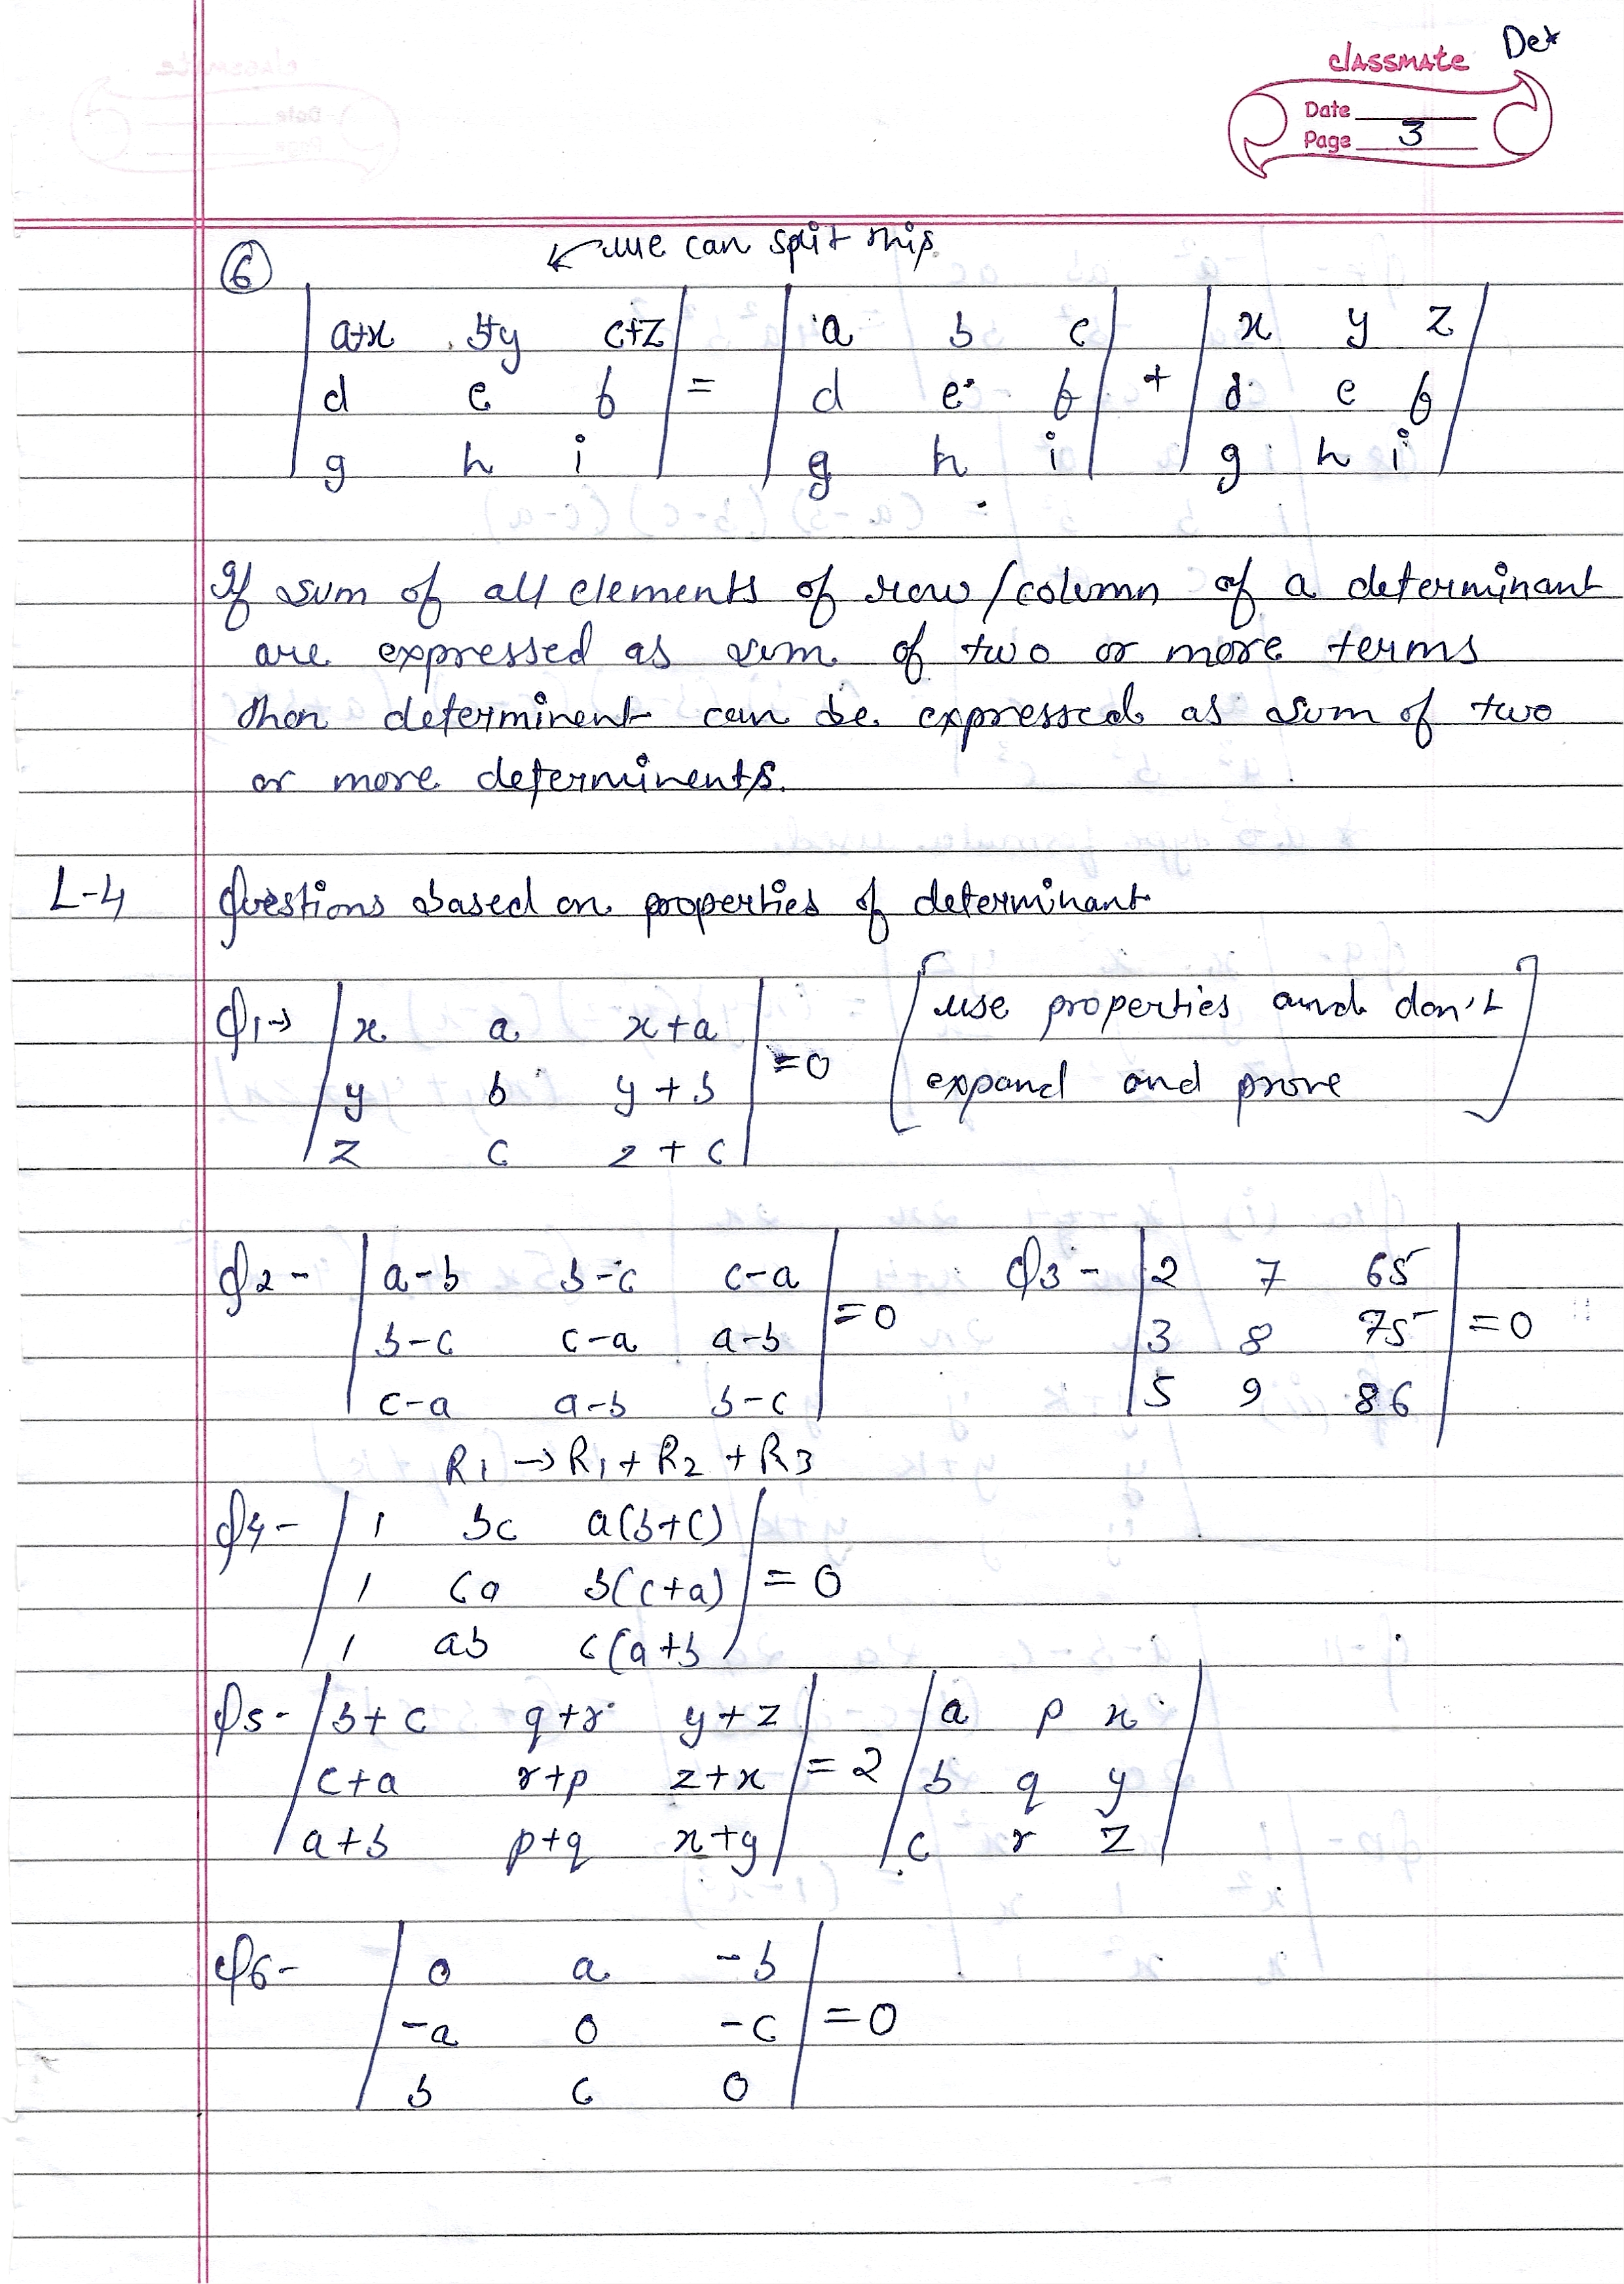 Det
classmate
Date
Page 3
6 we can split this
| a+x b+y c+z | = | a b c | + | x y z |
| d e f | | d e f | | d e f |
| g h i | | g h i | | g h i |
If sum of all elements of row/column of a determinant
are expressed as sum of two or more terms
then determinent can be expressed as sum of two
or more determinents.
L-4 Questions based on properties of determinant
Q1→ | x a x+a | = 0 [use properties and don't
| y b y+b | expand and prove]
| z c z+c |
Q2- | a-b b-c c-a | = 0 Q3- | 2 7 65 | = 0
| b-c c-a a-b | | 3 8 75 |
| c-a a-b b-c | | 5 9 86 |
R1 → R1 + R2 + R3
Q4- | 1 bc a(b+c) | = 0
| 1 ca b(c+a) |
| 1 ab c(a+b |
Q5- | b+c q+r y+z | = 2 | a p x |
| c+a r+p z+x | | b q y |
| a+b p+q x+y | | c r z |
Q6- | 0 a -b | = 0
| -a 0 -c |
| b c 0 |